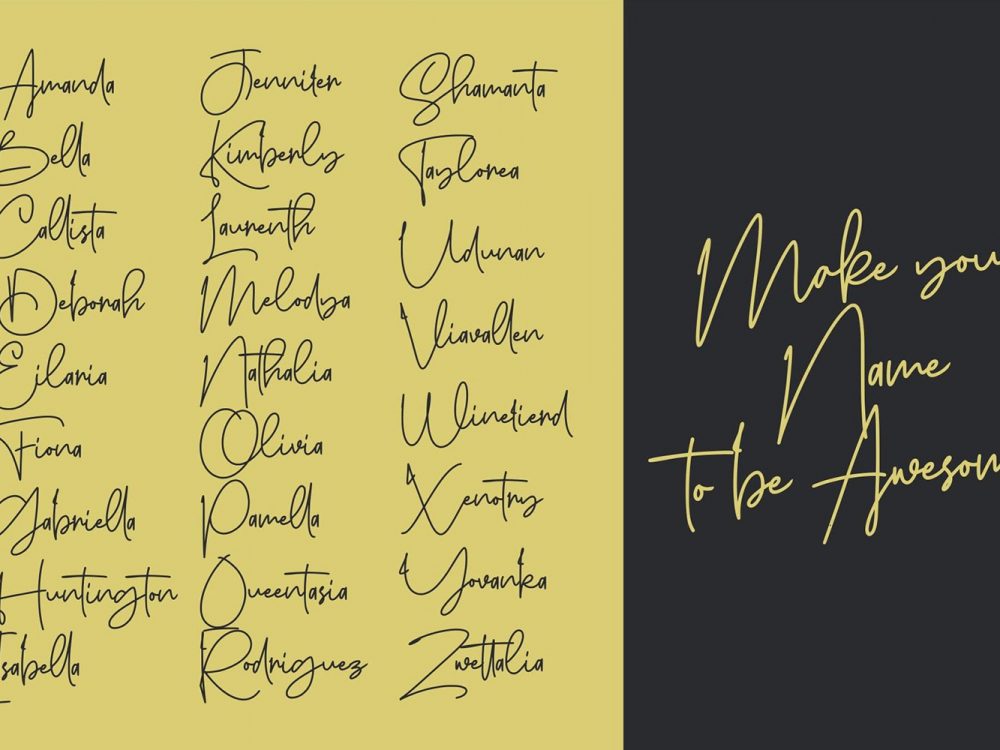 Amanda
Bella
Callista
Deborah
Eilaria
Fiona
Gabriella
Huntington
Isabella
Jennifer
Kimberly
Laurenth
Melodya
Nathalia
Olivia
Pamella
Queentasia
Rodriguez
Shamanta
Taylorea
Udunan
Vliavallen
Winetierd
Xenotry
Yovanka
Zwettalia
Make you
Name
to be Awesom